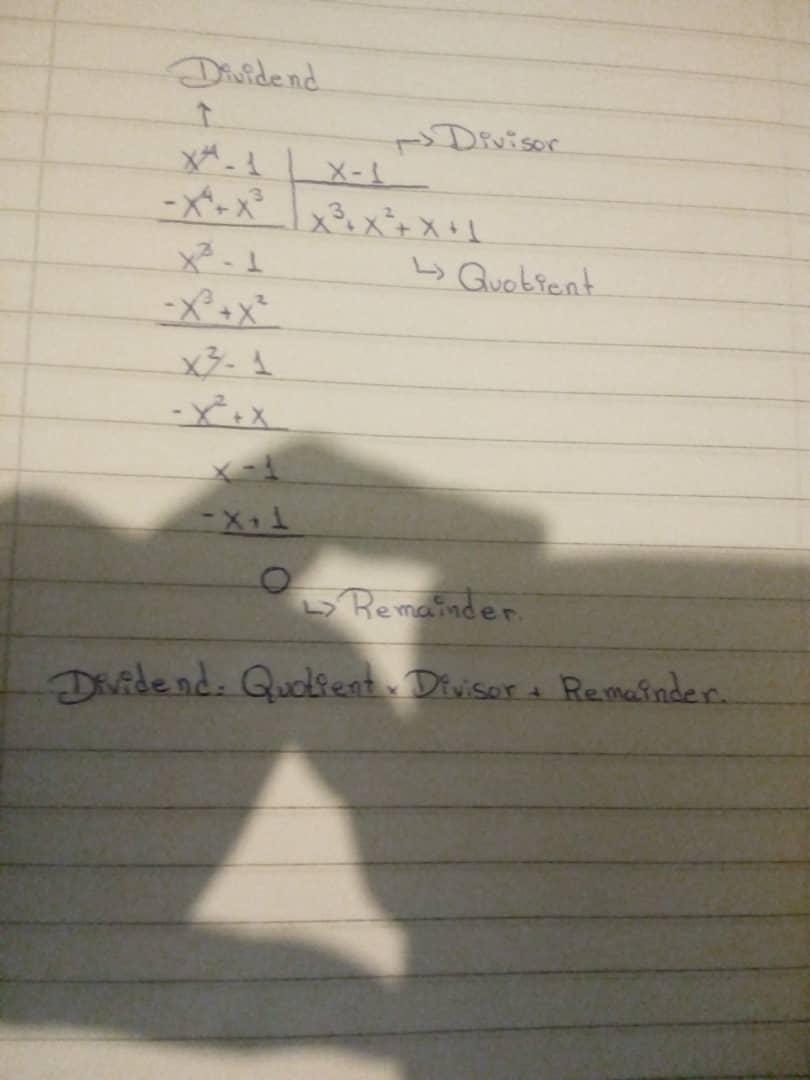 Dividend
↑
→ Divisor
x⁴ - 1 | x - 1
-x⁴ + x³ | x³ + x² + x + 1
x³ - 1
↳ Quotient
-x³ + x²
x² - 1
-x² + x
x - 1
-x + 1
0
↳ Remainder.
Dividend = Quotient × Divisor + Remainder.